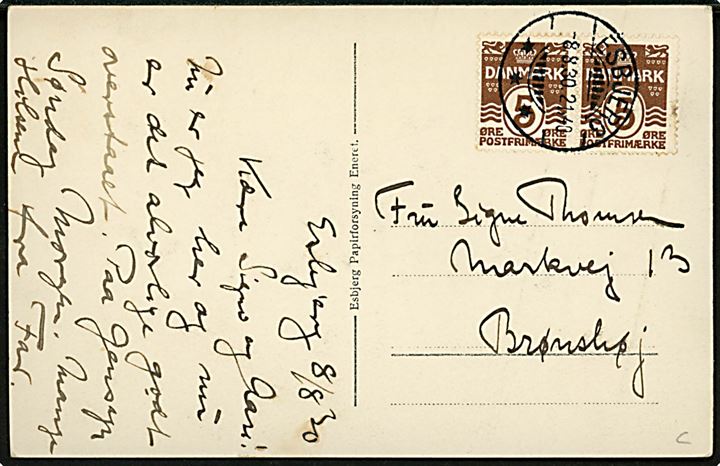 Esbjerg 8/8 30
Kære Signe og Aase!
Nu er jeg her og nu
er det alvorlige godt
overstaaet. Paa Gensyn
Søndag Morgen. Mange
Hilsener fra Far.
Esbjerg Papirforsyning Eneret.
DANMARK
5
ØRE
POSTFRIMÆRKE
DANMARK
5
ØRE
POSTFRIMÆRKE
ESBJERG
-8.8.30.21-
Fru Signe Thomsen
Markvej 13
Brønshøj
C